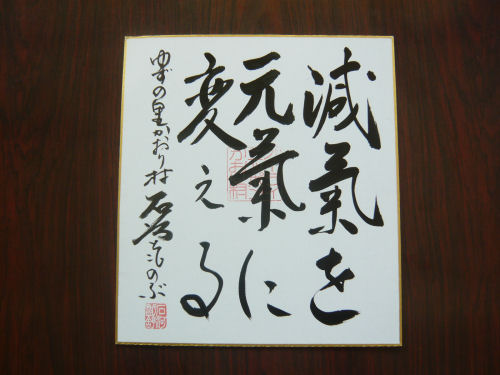 減氣を
元氣に
変える
ゆずの里かおり村
石
のぶ